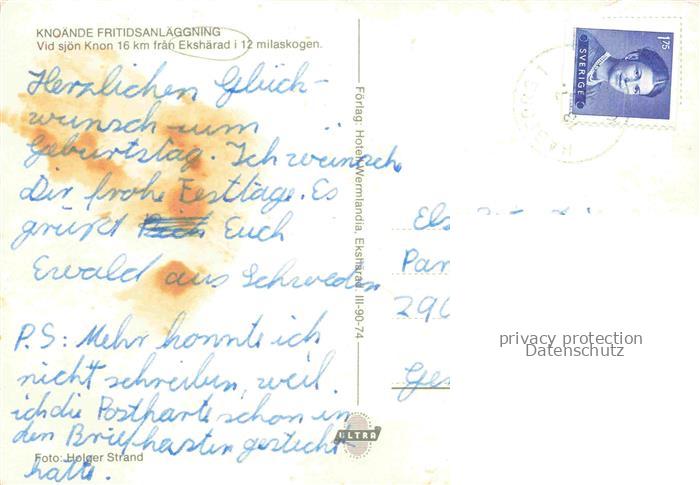 KNOÄNDE FRITIDSANLÄGGNING
Vid sjön Knon 16 km från Ekshärad i 12 milaskogen.
Herzlichen Glück-
wunsch zum
Geburtstag. Ich wünsche
Dir frohe Festtage. Es
grüßt Euch
Ewald aus Schweden
P.S: Mehr konnte ich
nicht schreiben, weil
ich die Postkarte schon in
den Briefkasten gesteckt
hatte.
Foto: Holger Strand
Förlag: Hotell Wermlandia, Ekshärad. III-90-74
ULTRA
1.75
SVERIGE
Els
Par
290
privacy protection
Datenschutz